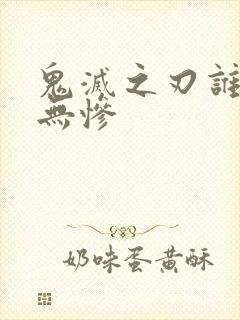 鬼滅之刃誰
無慘
奶味蛋黃酥